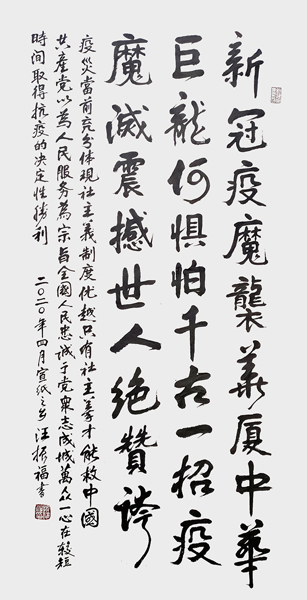 新冠疫魔襲華厦中華
巨龍何惧怕千古一招疫
魔滅震撼世人绝贊誇
疫災當前充分体現社主義制度优越只有社主義才能救中國
共產党以為人民服务為宗旨全國人民忠誠于党衆志成城萬众一心在较短
時间取得抗疫的决定性勝利
二〇二〇年四月宣紙之乡汪振福書